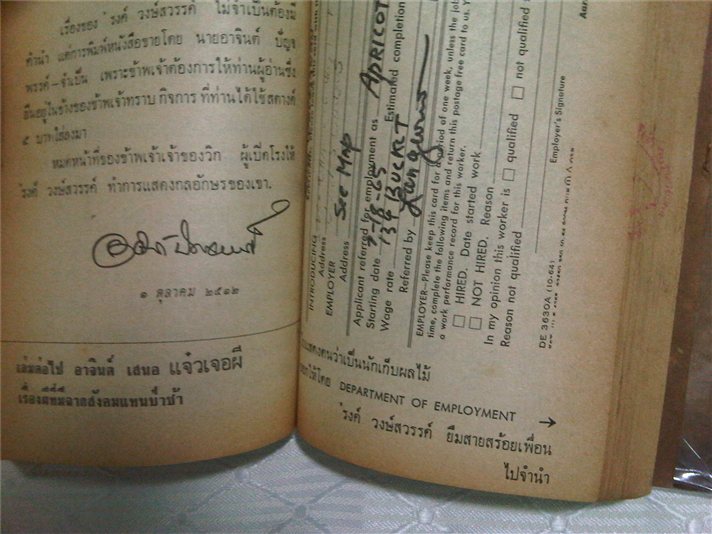 เรื่องของ 'รงค์ วงษ์สวรรค์ ไม่จำเป็นต้องมี
คำนำ แต่การพิมพ์หนังสือขายโดย นายอาจินต์ ปัญจ
พรรค์-จำเป็น เพราะข้าพเจ้าต้องการให้ท่านผู้อ่านซึ่ง
ยืนอยู่ในข้างของข้าพเจ้าทราบ กิจการ ที่ท่านได้ใช้สตางค์
๕ บาทใส่ลงมา
หมดหน้าที่ของข้าพเจ้าเจ้าของวิก ผู้เปิดโรงให้
'รงค์ วงษ์สวรรค์ ทำการแสดงกลอักษรของเขา.
๑ ตุลาคม ๒๕๑๒
เล่มต่อไป อาจินต์ เสนอ แจ๋วเจอผี
INTRODUCING
Address
EMPLOYER
Address See Map
Applicant referred for employment as APRICOT
Starting date 7-18-65 Estimated completion
Wage rate 13¢ BUCKET
Referred by
EMPLOYER—Please keep this card for a period of one week, unless the job
time, complete the following items and return this postage free card to us. Y
a work performance record for this worker.
☐ HIRED. Date started work
☐ NOT HIRED. Reason
In my opinion this worker is ☐ qualified ☐ not qualified
Reason not qualified
Employer's Signature
DE 3630A (10-64)
แสดงตนว่าเป็นนักเก็บผลไม้
ให้โดย DEPARTMENT OF EMPLOYMENT →
'รงค์ วงษ์สวรรค์ ยืมสายสร้อยเพื่อน
ไปจำนำ